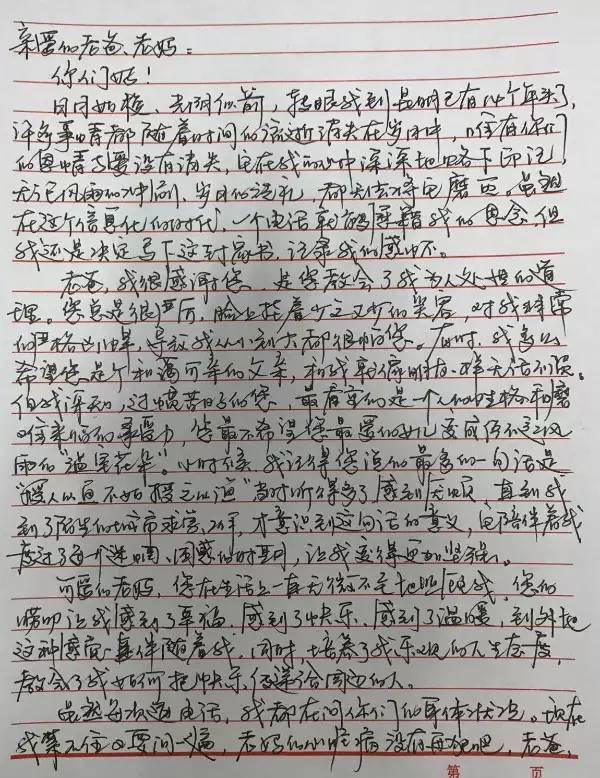 亲爱的老爸、老妈：
你们好！
日月如梭、光阴似箭，转眼我到昆明已有14个年头了，
许多事情都随着时间的流逝消失在岁月中，唯有你们
的恩情与爱没有消失，它在我的心中深深地烙下印记，
无论风雨的冲刷，岁月的洗礼，都无法将它磨灭。虽然
在这个信息化的时代，一个电话就能承载我的思念，但
我还是决定写下这封家书，记录我的感怀。
老爸，我很感谢您，是您教会了我为人处世的道
理。您总是很严厉，脸上挂着少之又少的笑容，对我非常
的严格凶悍，导致我从小到大都很怕您。有时，我多么
希望您是个和蔼可亲的父亲，和我就像朋友一样无话不谈。
但我深知，过惯苦日子的您，最看重的是一个人的性格和磨
练来临的承受力，您最不希望您最爱的女儿变成经不起风
雨的“温室花朵”。小时候，我记得您说的最多的一句话是
“授人以鱼不如授之以渔”当时听得多了感到厌烦，直到我
到了陌生的城市求学、工作，才意识到这句话的意义，它陪伴着我
度过了每个迷惘、困惑的时期，让我变得更加坚强。
可爱的老妈，您在生活上一直无微不至地照顾我，您的
唠叨让我感到了幸福、感到了快乐、感到了温暖，到外地
这种感觉一直伴随着我，同时，培养了我乐观的人生态度，
教会了我如何把快乐传递给周边的人。
虽然每次通电话，我都在问你们的身体状况。现在
我禁不住又要问一遍，老妈的心脏病没有再犯吧，老爸，
第 页